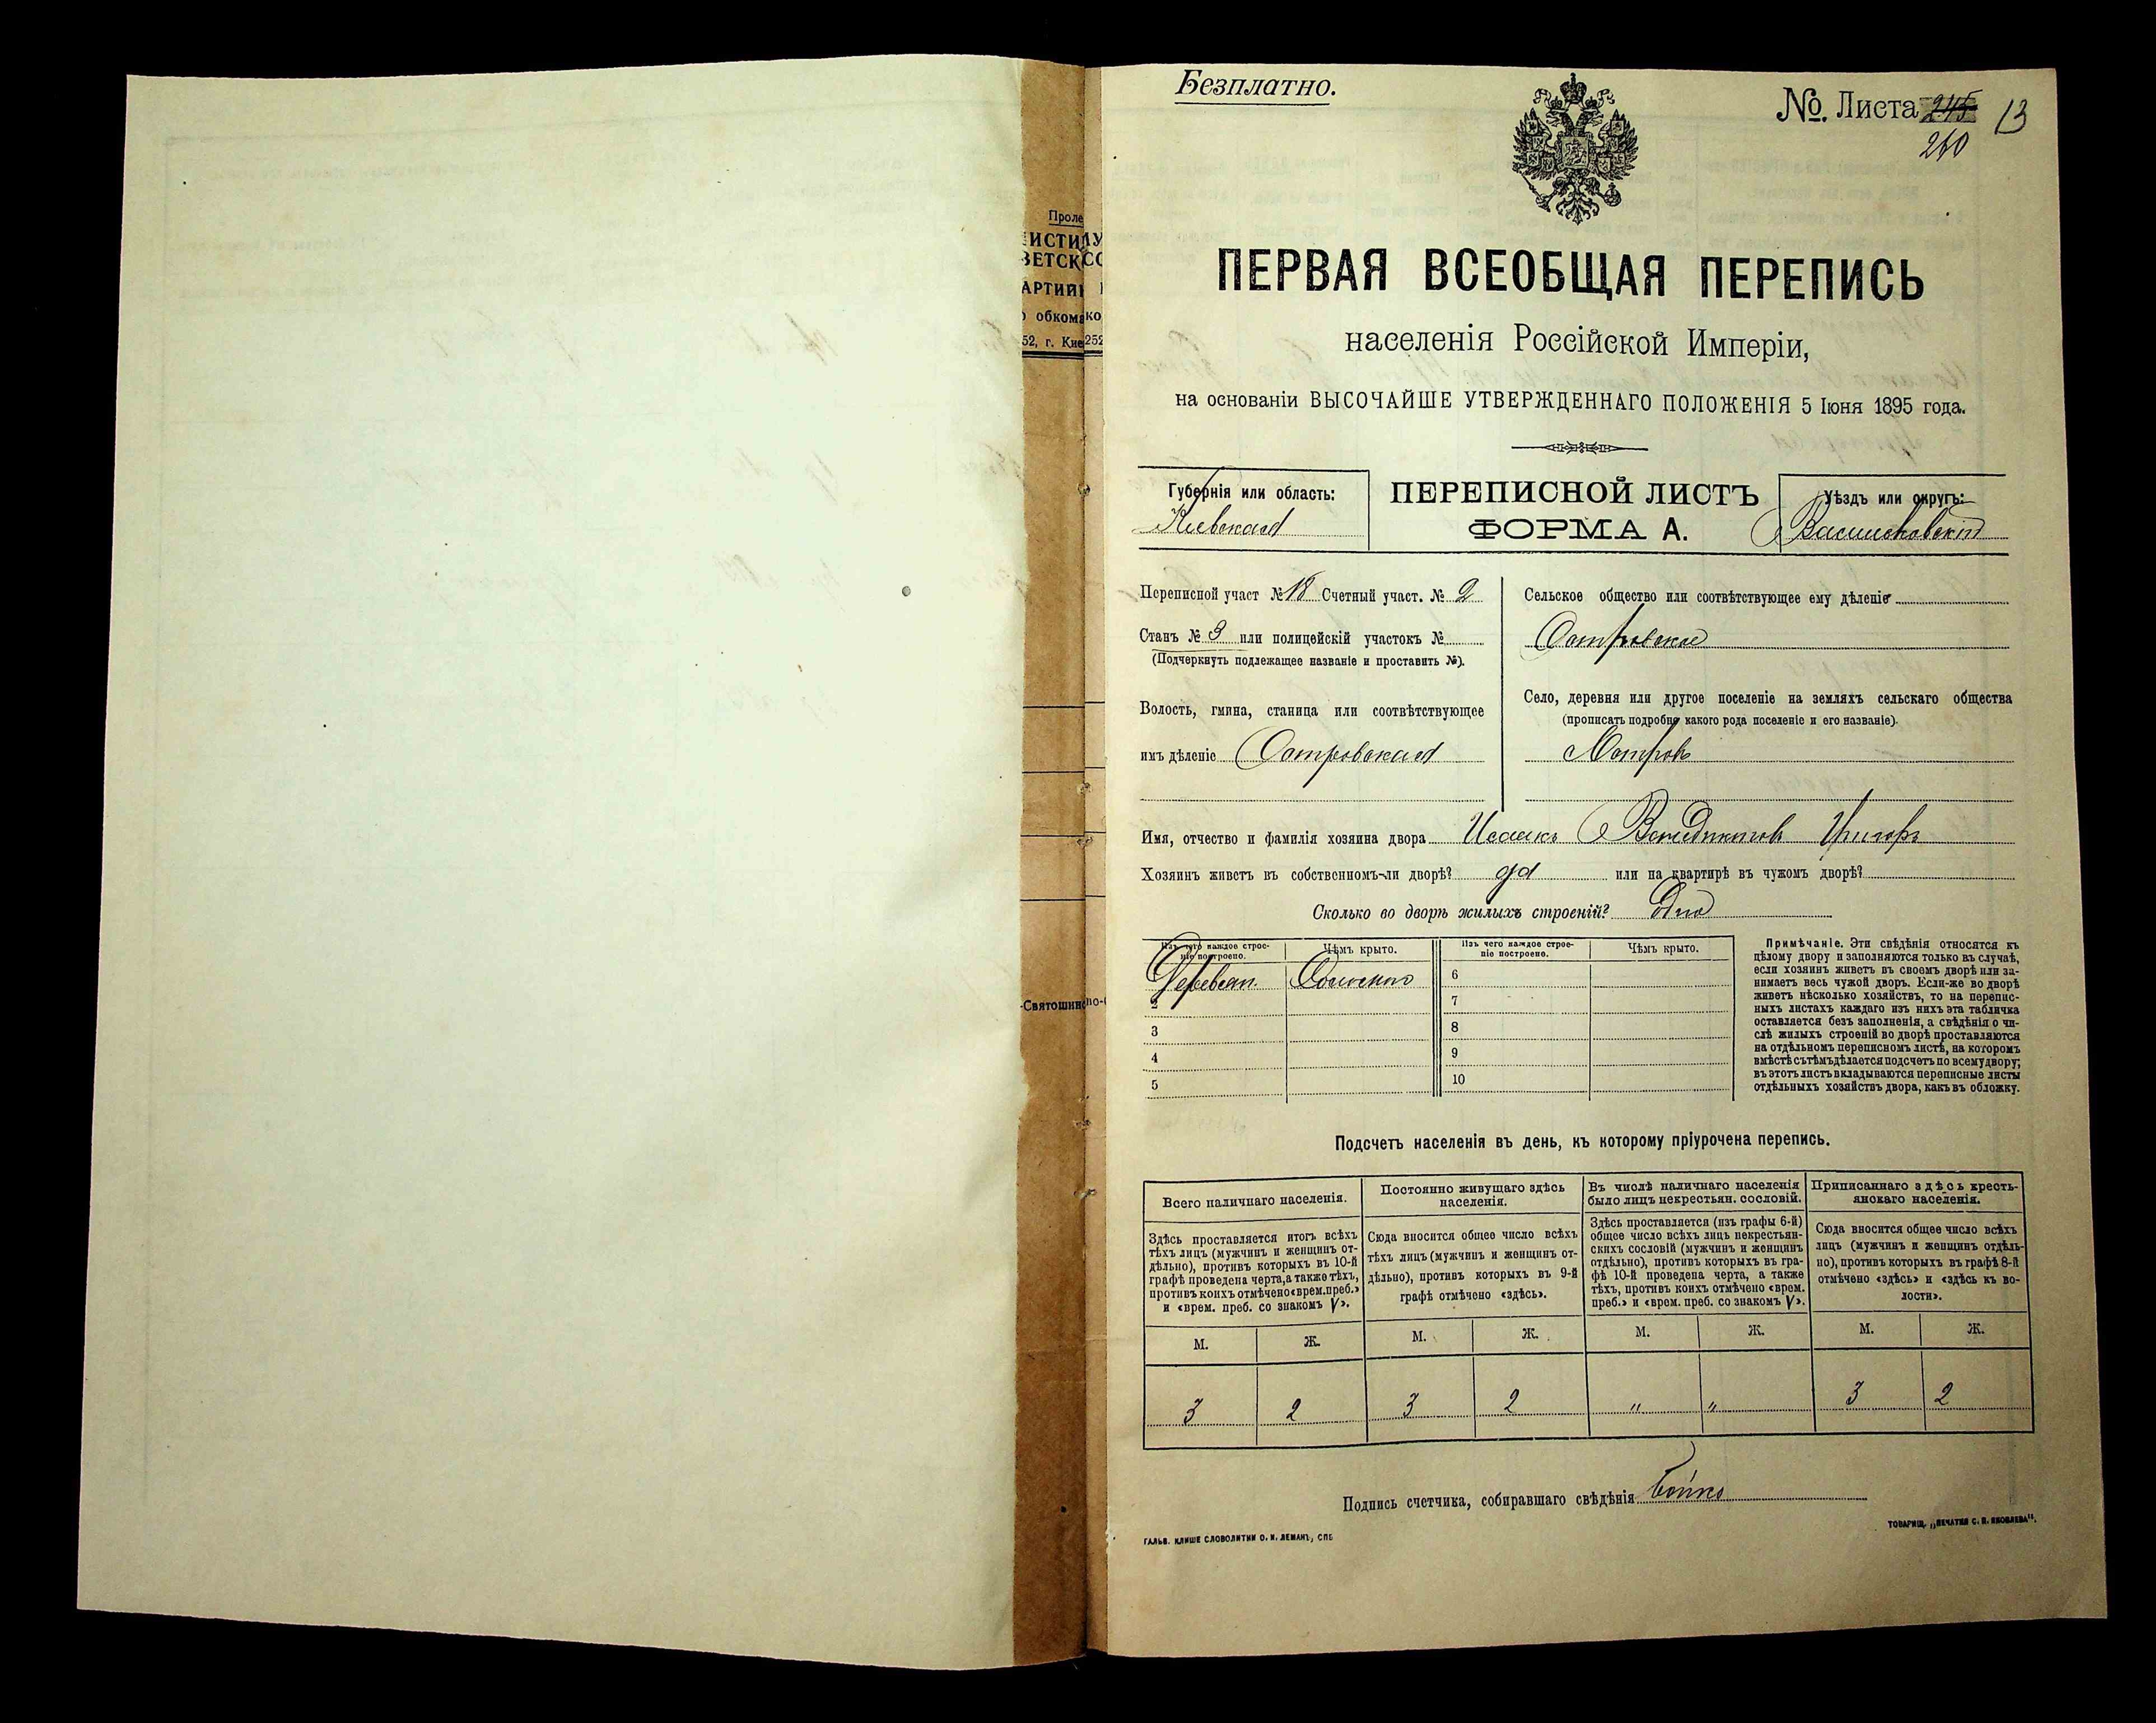 Безплатно.
№. Листа 245 13
260
ПЕРВАЯ ВСЕОБЩАЯ ПЕРЕПИСЬ
населенія Россійской Имперіи,
на основаніи ВЫСОЧАЙШЕ УТВЕРЖДЕННАГО ПОЛОЖЕНІЯ 5 Іюня 1895 года.
Губернія или область:
Кіевская
ПЕРЕПИСНОЙ ЛИСТЪ
ФОРМА А.
Уѣздъ или округъ:
Васильковскій
Переписной участ №18 Счетный участ. № 2
Станъ № 3 или полицейскій участокъ №
(Подчеркнуть подлежащее названіе и проставить №).
Волость, гмина, станица или соотвѣтствующее
имъ дѣленіе Островская
Сельское общество или соотвѣтствующее ему дѣленіе
Островское
Село, деревня или другое поселеніе на земляхъ сельскаго общества
(прописать подробно какого рода поселеніе и его названіе).
Островъ
Имя, отчество и фамилія хозяина двора Исаакъ Венедиктовъ
Хозяинъ живетъ въ собственномъ-ли дворѣ? да или на квартирѣ въ чужомъ дворѣ?
Сколько во дворѣ жилыхъ строеній? Одно
Изъ чего каждое строе-
ніе построено.
Чѣмъ крыто.
Изъ чего каждое строе-
ніе построено.
Чѣмъ крыто.
Деревян. Соломою 6
2 7
3 8
4 9
5 10
Примѣчаніе. Эти свѣдѣнія относятся къ
цѣлому двору и заполняются только въ случаѣ,
если хозяинъ живетъ въ своемъ дворѣ или за-
нимаетъ весь чужой дворъ. Если-же во дворѣ
живетъ нѣсколько хозяйствъ, то на перепис-
ныхъ листахъ каждаго изъ нихъ эта табличка
оставляется безъ заполненія, а свѣдѣнія о чи-
слѣ жилыхъ строеній во дворѣ проставляются
на отдѣльномъ переписномъ листѣ, на которомъ
вмѣстѣ съ тѣмъ дѣлается подсчетъ по всему двору;
въ этотъ листъ вкладываются переписные листы
отдѣльныхъ хозяйствъ двора, какъ въ обложку.
Подсчетъ населенія въ день, къ которому пріурочена перепись.
Всего наличнаго населенія.
Здѣсь проставляется итогъ всѣхъ
тѣхъ лицъ (мужчинъ и женщинъ от-
дѣльно), противъ которыхъ въ 10-й
графѣ проведена черта, а также тѣхъ,
противъ коихъ отмѣчено «врем. преб.»
и «врем. преб. со знакомъ V».
Постоянно живущаго здѣсь
населенія.
Сюда вносится общее число всѣхъ
тѣхъ лицъ (мужчинъ и женщинъ от-
дѣльно), противъ которыхъ въ 9-й
графѣ отмѣчено «здѣсь».
Въ числѣ наличнаго населенія
было лицъ некрестьян. сословій.
Здѣсь проставляется (изъ графы 6-й)
общее число всѣхъ лицъ некрестьян-
скихъ сословій (мужчинъ и женщинъ
отдѣльно), противъ которыхъ въ гра-
фѣ 10-й проведена черта, а также
тѣхъ, противъ коихъ отмѣчено «врем.
преб.» и «врем. преб. со знакомъ V».
Приписаннаго здѣсь кресть-
янскаго населенія.
Сюда вносится общее число всѣхъ
лицъ (мужчинъ и женщинъ отдѣль-
но), противъ которыхъ въ графѣ 8-й
отмѣчено «здѣсь» и «здѣсь къ во-
лости».
М. Ж. М. Ж. М. Ж. М. Ж.
3 2 3 2 " " 3 2
Подпись счетчика, собиравшаго свѣдѣнія Бойко
ГАЛЬВ. КЛИШЕ СЛОВОЛИТНИ О. И. ЛЕМАНЪ, СПБ
ТОВАРИЩ. „ПЕЧАТНЯ С. П. ЯКОВЛЕВА".